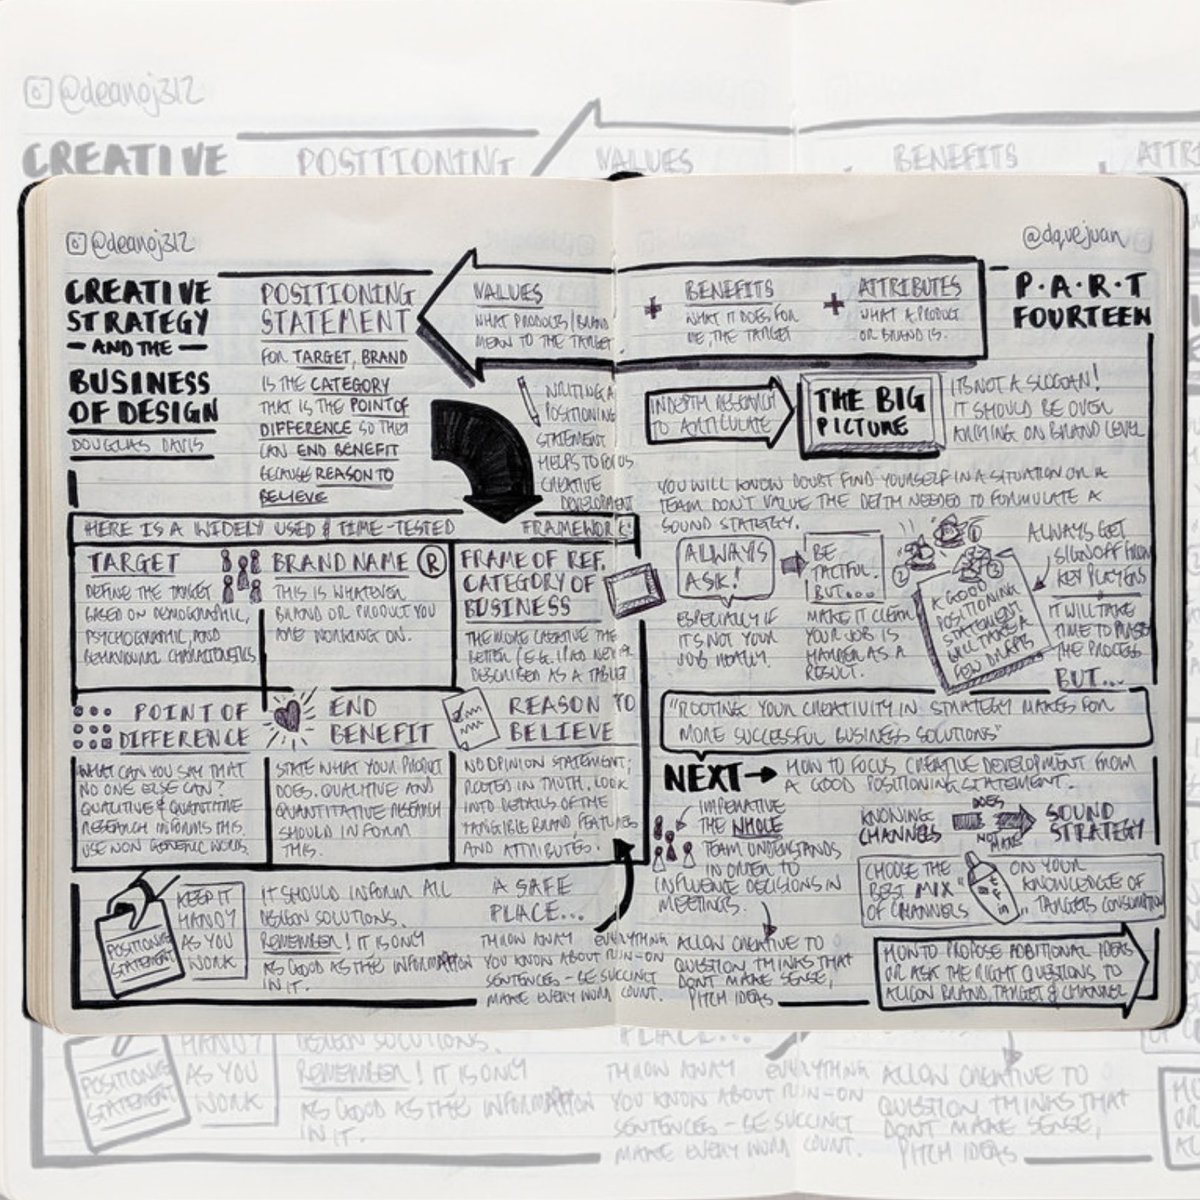 @deanoj312
CREATIVE
POSITIONING
VALUES
BENEFITS
@deanoj312
@dqvejuan
CREATIVE
STRATEGY
- AND THE -
BUSINESS
OF DESIGN
DOUGLAS DAVIS
POSITIONING
STATEMENT
FOR TARGET, BRAND
IS THE CATEGORY
THAT IS THE POINT OF
DIFFERENCE SO THEY
CAN END BENEFIT
BECAUSE REASON TO
BELIEVE
VALUES
WHAT PRODUCTS/BRAND
MEAN TO THE TARGET
+
BENEFITS
WHAT IT DOES FOR
ME, THE TARGET
+
ATTRIBUTES
WHAT A PRODUCT
OR BRAND IS.
P·A·R·T
FOURTEEN
WRITING A
POSITIONING
STATEMENT
HELPS TO FOCUS
CREATIVE
DEVELOPMENT
INDEPTH RESEARCH
TO ARTICULATE
THE BIG
PICTURE
ITS NOT A SLOGAN!
IT SHOULD BE OVER
ARCHING ON BRAND LEVEL
YOU WILL KNOW DOUBT FIND YOURSELF IN A SITUATION OR A
TEAM DON'T VALUE THE DEPTH NEEDED TO FORMULATE A
SOUND STATEGY.
HERE IS A WIDELY USED & TIME-TESTED FRAMEWORK:
TARGET
DEFINE THE TARGET
BASED ON DEMOGRAPHIC,
PSYCHOGRAPHIC, AND
BEHAVIOURAL CHARACTERISTICS
BRAND NAME ®
THIS IS WHATEVER
BRAND OR PRODUCT YOU
ARE WORKING ON.
FRAME OF REF.
CATEGORY OF
BUSINESS
THE MORE CREATIVE THE
BETTER (E.G. IPAD NEVER
DESCRIBED AS A TABLET
POINT OF
DIFFERENCE
WHAT CAN YOU SAY THAT
NO ONE ELSE CAN?
QUALITIVE & QUANTITIVE
RESEARCH INFORMS THIS.
USE NON GENERIC WORDS.
END
BENEFIT
STATE WHAT YOUR PRODUCT
DOES. QUALITIVE AND
QUANTITATIVE RESEARCH
SHOULD INFORM
THIS.
REASON TO
BELIEVE
NO OPINION STATEMENT;
ROOTED IN TRUTH, LOOK
INTO DETAILS OF THE
TANGIBLE BRAND FEATURES
AND ATTRIBUTES.
ALWAYS
ASK!
ESPECIALLY IF
IT'S NOT YOUR
JOB REALLY.
BE
TACTFUL.
BUT...
MAKE IT CLEAR
YOUR JOB IS
HARDER AS A
RESULT.
A GOOD
POSITIONING
STATEMENT
WILL TAKE A
FEW DRAFTS
ALWAYS GET
SIGNOFF FROM
KEY PLAYERS
IT WILL TAKE
TIME TO
THE PROCESS
BUT...
"ROOTING YOUR CREATIVITY IN STRATEGY MAKES FOR
MORE SUCCESSFUL BUSINESS SOLUTIONS"
NEXT → HOW TO FOCUS CREATIVE DEVELOPMENT FROM
A GOOD POSITIONING STATEMENT.
IMPERATIVE
THE WHOLE
TEAM UNDERSTANDS
IN ORDER TO
INFLUENCE DECISIONS IN
MEETINGS.
KNONING
CHANNELS
DOES
NOT MAKE
SOUND
STRATEGY
CHOOSE THE
BEST MIX
OF CHANNELS
ON YOUR
KNOWLEDGE OF
TARGETS CONSUMPTION
POSITIONING
STATEMENT
KEEP IT
HANDY
AS YOU
WORK
IT SHOULD INFORM ALL
DESIGN SOLUTIONS.
REMEMBER! IT IS ONLY
AS GOOD AS THE INFORMATION
IN IT.
A SAFE
PLACE...
THROW AWAY EVERYTHING
YOU KNOW ABOUT RUN-ON
SENTENCES - BE SUCCINCT
MAKE EVERY WORD COUNT.
ALLOW CREATIVE TO
QUESTION THINKS THAT
DONT MAKE SENSE,
PITCH IDEAS
HOW TO PROPOSE ADDITIONAL IDEAS
OR ASK THE RIGHT QUESTIONS TO
ALIGN BRAND, TARGET & CHANNEL
POSITIONING
STATEMENT
HANDY
AS YOU
WORK
DESIGN SOLUTIONS.
REMEMBER! IT IS ONLY
AS GOOD AS THE INFORMATION
IN IT.
PLACE...
THROW AWAY EVERYTHING
YOU KNOW ABOUT RUN-ON
SENTENCES - BE SUCCINCT
MAKE EVERY WORD COUNT.
ALLOW CREATIVE TO
QUESTION THINKS THAT
DONT MAKE SENSE,
PITCH IDEAS